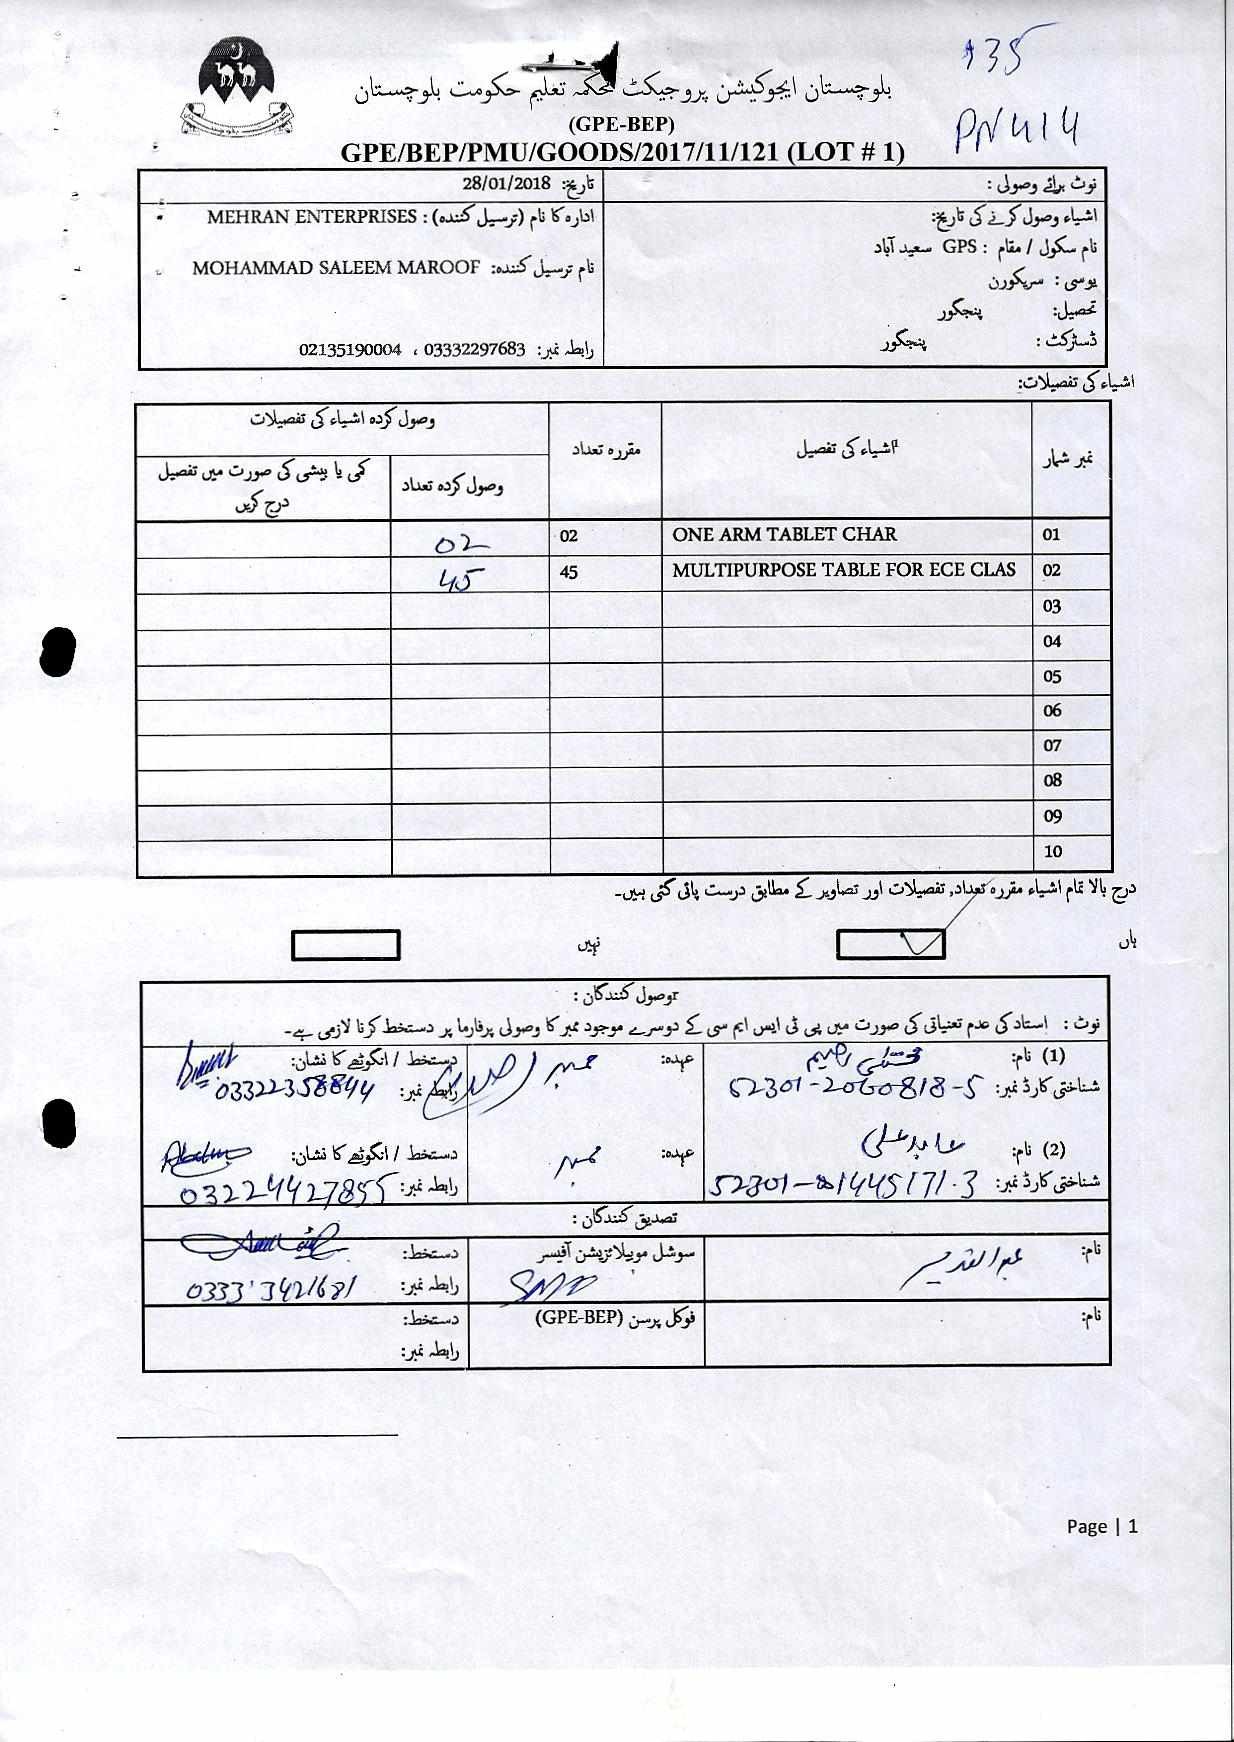 135
PN414
بلوچستان ایجوکیشن پروجیکٹ محکمہ تعلیم حکومت بلوچستان
(GPE-BEP)
GPE/BEP/PMU/GOODS/2017/11/121 (LOT # 1)
نوٹ برائے وصولی :
تاریخ: 28/01/2018
اشیاء وصول کرنے کی تاریخ:
نام سکول / مقام : GPS سعید آباد
یوسی : سریکورن
تحصیل: پنجگور
ڈسٹرکٹ : پنجگور
ادارہ کا نام (ترسیل کنندہ) : MEHRAN ENTERPRISES
نام ترسیل کنندہ: MOHAMMAD SALEEM MAROOF
رابطہ نمبر: 03332297683 ، 02135190004
اشیاء کی تفصیلات:
نمبر شمار اشیاء کی تفصیل مقررہ تعداد وصول کردہ اشیاء کی تفصیلات
وصول کردہ تعداد کمی یا بیشی کی صورت میں تفصیل درج کریں
01 ONE ARM TABLET CHAR 02 02
02 MULTIPURPOSE TABLE FOR ECE CLAS 45 45
03
04
05
06
07
08
09
10
درج بالا تمام اشیاء مقررہ تعداد, تفصیلات اور تصاویر کے مطابق درست پائی گئی ہیں۔
ہاں نہیں
وصول کنندگان :
نوٹ : استاد کی عدم تعنیاتی کی صورت میں پی ٹی ایس ایم سی کے دوسرے موجود ممبر کا وصولی پرفارما پر دستخط کرنا لازمی ہے۔
(1) نام: عہدہ: ممبر دستخط / انگوٹھے کا نشان:
شناختی کارڈ نمبر: 52301-2060818-5 رابطہ نمبر: 03322358844
(2) نام: عابد علی عہدہ: ممبر دستخط / انگوٹھے کا نشان:
شناختی کارڈ نمبر: رابطہ نمبر: 03224427855
تصدیق کنندگان :
نام: عبدالقدیر سوشل موبیلائزیشن آفیسر دستخط:
SMO رابطہ نمبر: 03333421681
نام: فوکل پرسن (GPE-BEP) دستخط:
رابطہ نمبر:
Page | 1